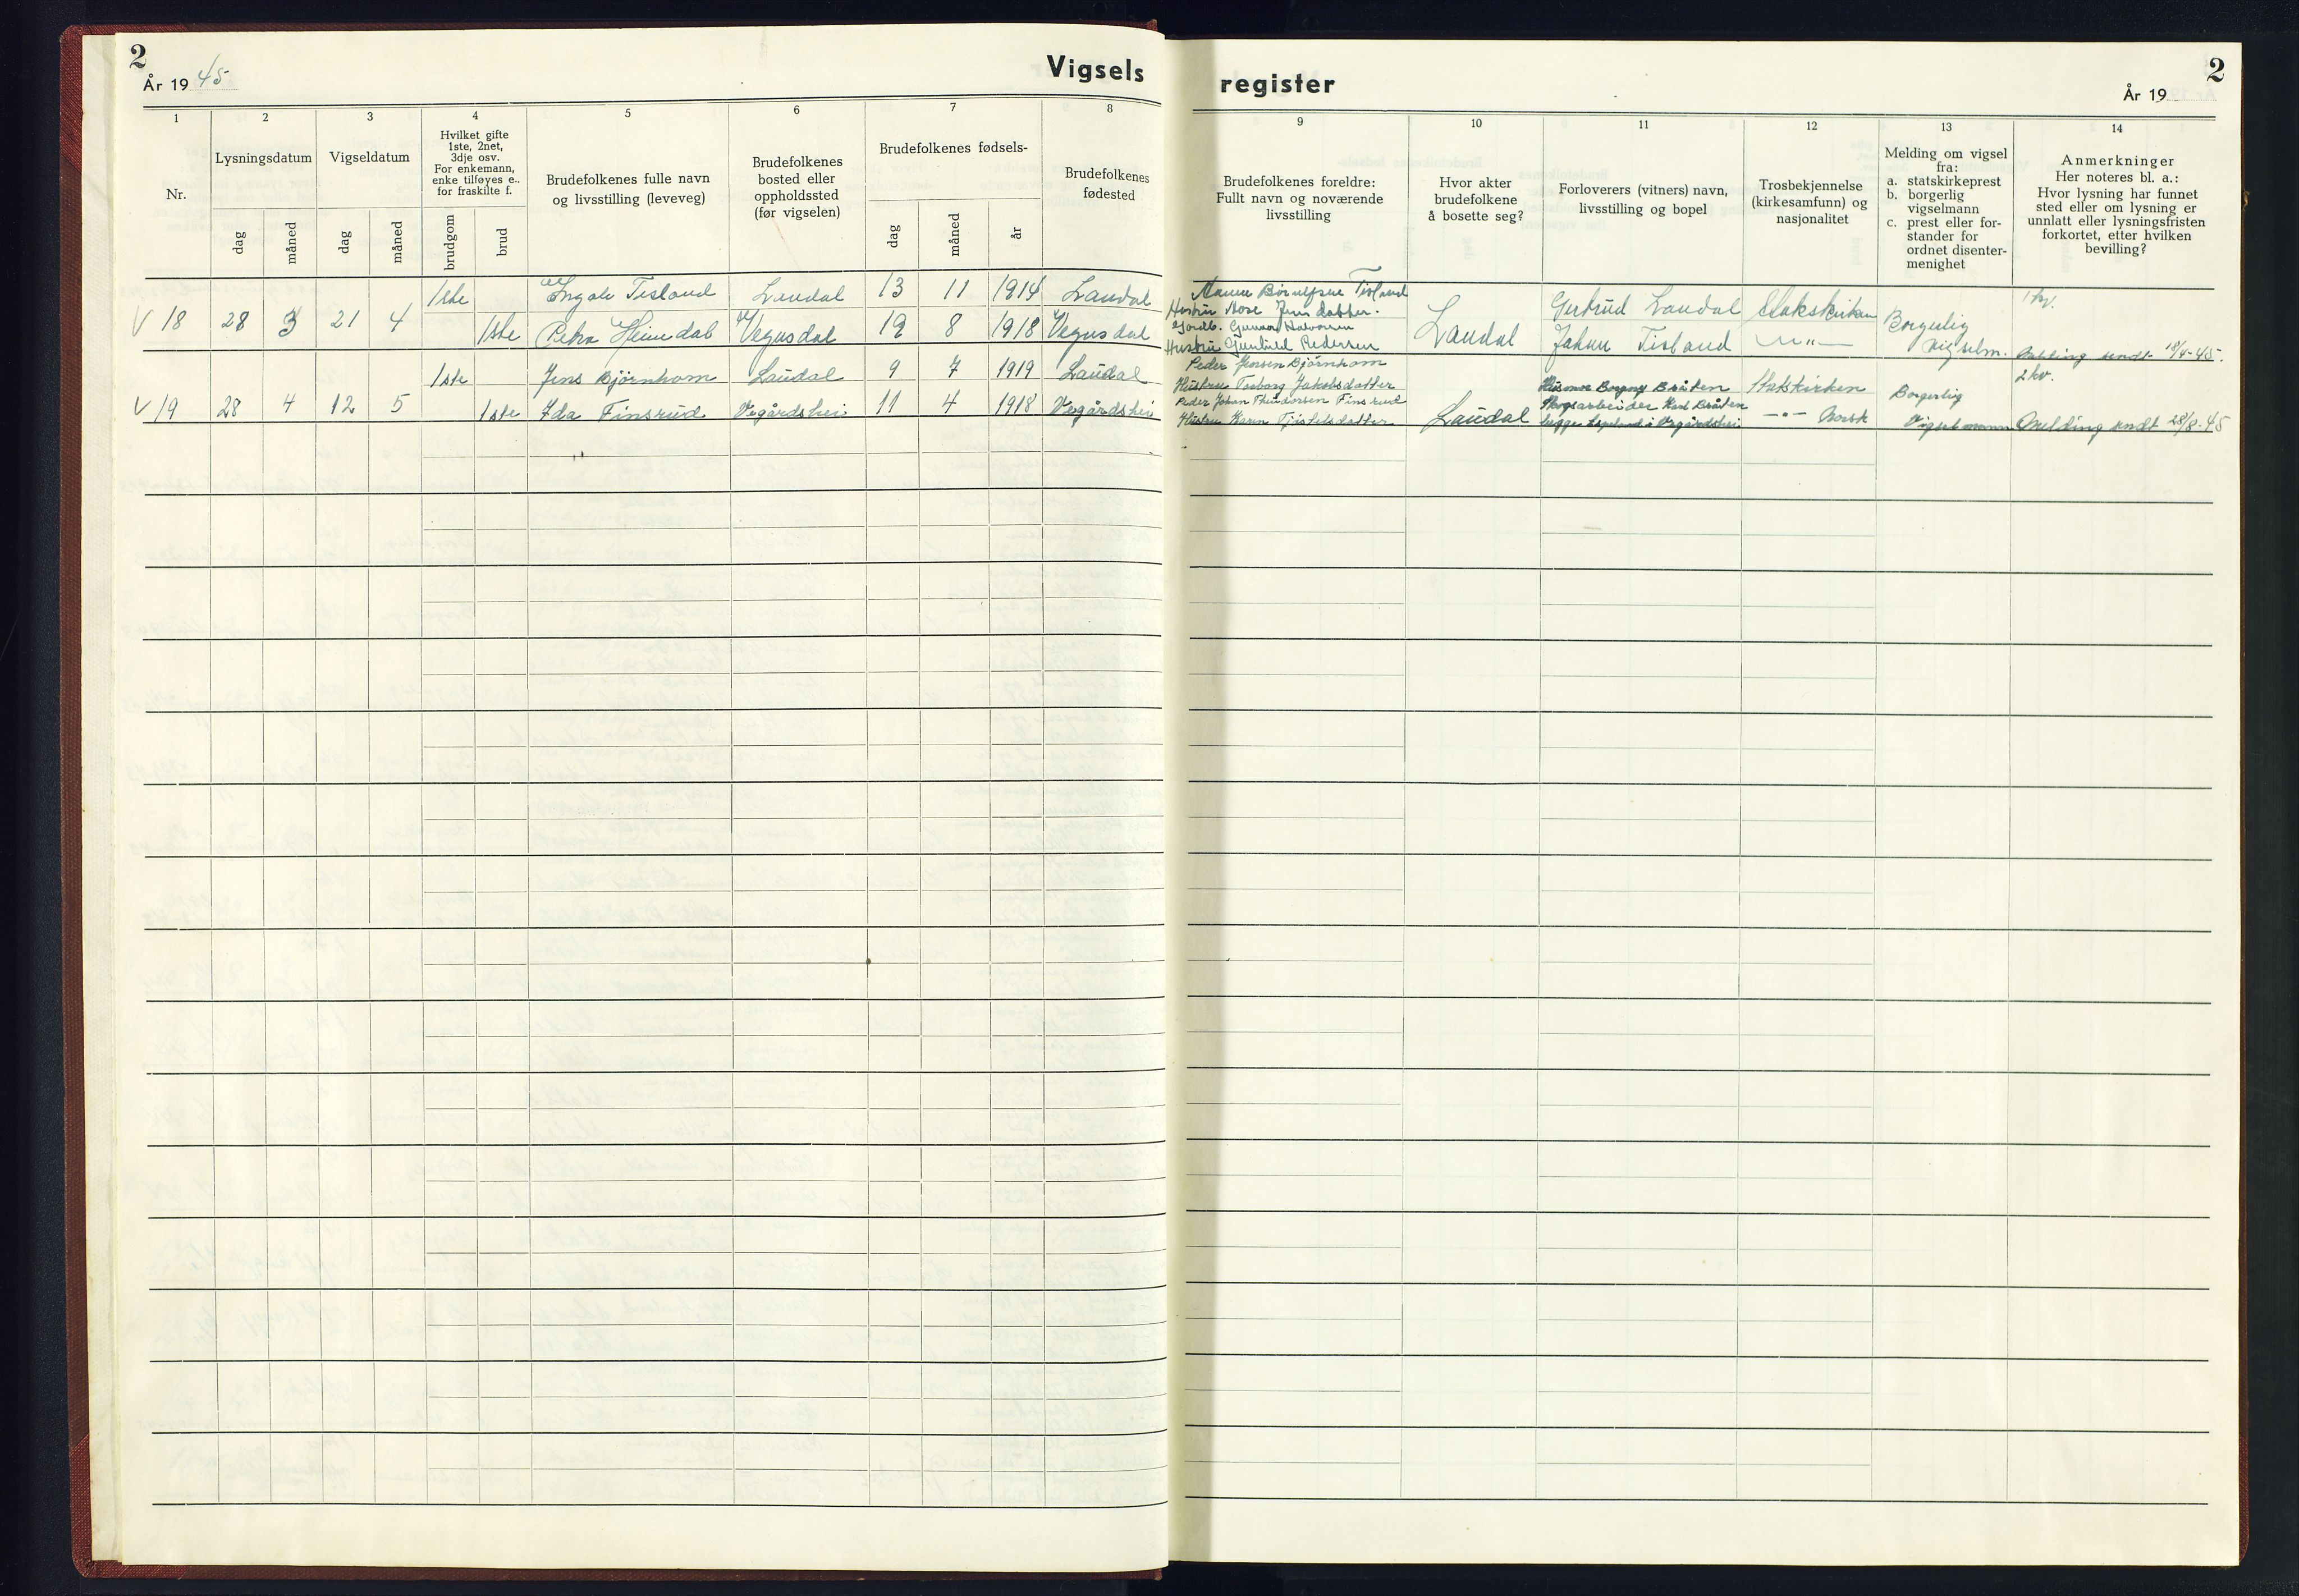 2
År 19 45
Vigsels
register
2
År 19
1
2
3
4
5
6
7
8
9
10
11
12
13
14
Nr.
Lysningsdatum
Vigseldatum
Hvilket gifte
1ste, 2net,
3dje osv.
For enkemann,
enke tilføyes e..
for fraskilte f.
Brudefolkenes fulle navn
og livsstilling (leveveg)
Brudefolkenes
bosted eller
oppholdssted
(før vigselen)
Brudefolkenes fødsels-
Brudefolkenes
fødested
Brudefolkenes foreldre:
Fullt navn og noværende
livsstilling
Hvor akter
brudefolkene
å bosette seg?
Forloverers (vitners) navn,
livsstilling og bopel
Trosbekjennelse
(kirkesamfunn) og
nasjonalitet
Melding om vigsel
fra:
a. statskirkeprest
b. borgerlig
vigselmann
c. prest eller for-
stander for
ordnet disenter-
menighet
Anmerkninger
Her noteres bl. a.:
Hvor lysning har funnet
sted eller om lysning er
unnlatt eller lysningsfristen
forkortet, etter hvilken
bevilling?
dag
måned
dag
måned
brudgom
brud
dag
måned
år
1ste Tisland Laudal 13 11 1914 Laudal
V 18 28 3 21 4
1ste Petra Heimdal Vegusdal 19 8 1918 Vegusdal
Tisland
Hustru Jensdatter.
Gunnar Halvorsen
Hustru Gunhild Pedersen
Laudal
Gertrud Laudal
Johan Tisland
Statskirken
—"—
Borgerlig
vigselm.
1 kv.
Melding sendt 18/4-45.
1ste Jens Björnhom Laudal 9 7 1919 Laudal
V 19 28 4 12 5
1ste Ida Finsrud Vegårdshei 11 4 1918 Vegårdshei
Peder Jensen Björnhom
Hustru Torborg Jakobsdatter
Peder Johan Finsrud
Hustru Karen
Laudal
Borgny Bråten
Skogsarbeider Bråten
begge i Vegårdshei
Statskirken
—"— Norsk
Borgerlig
Vigselmann
2 kv.
Melding sendt 28/8-45